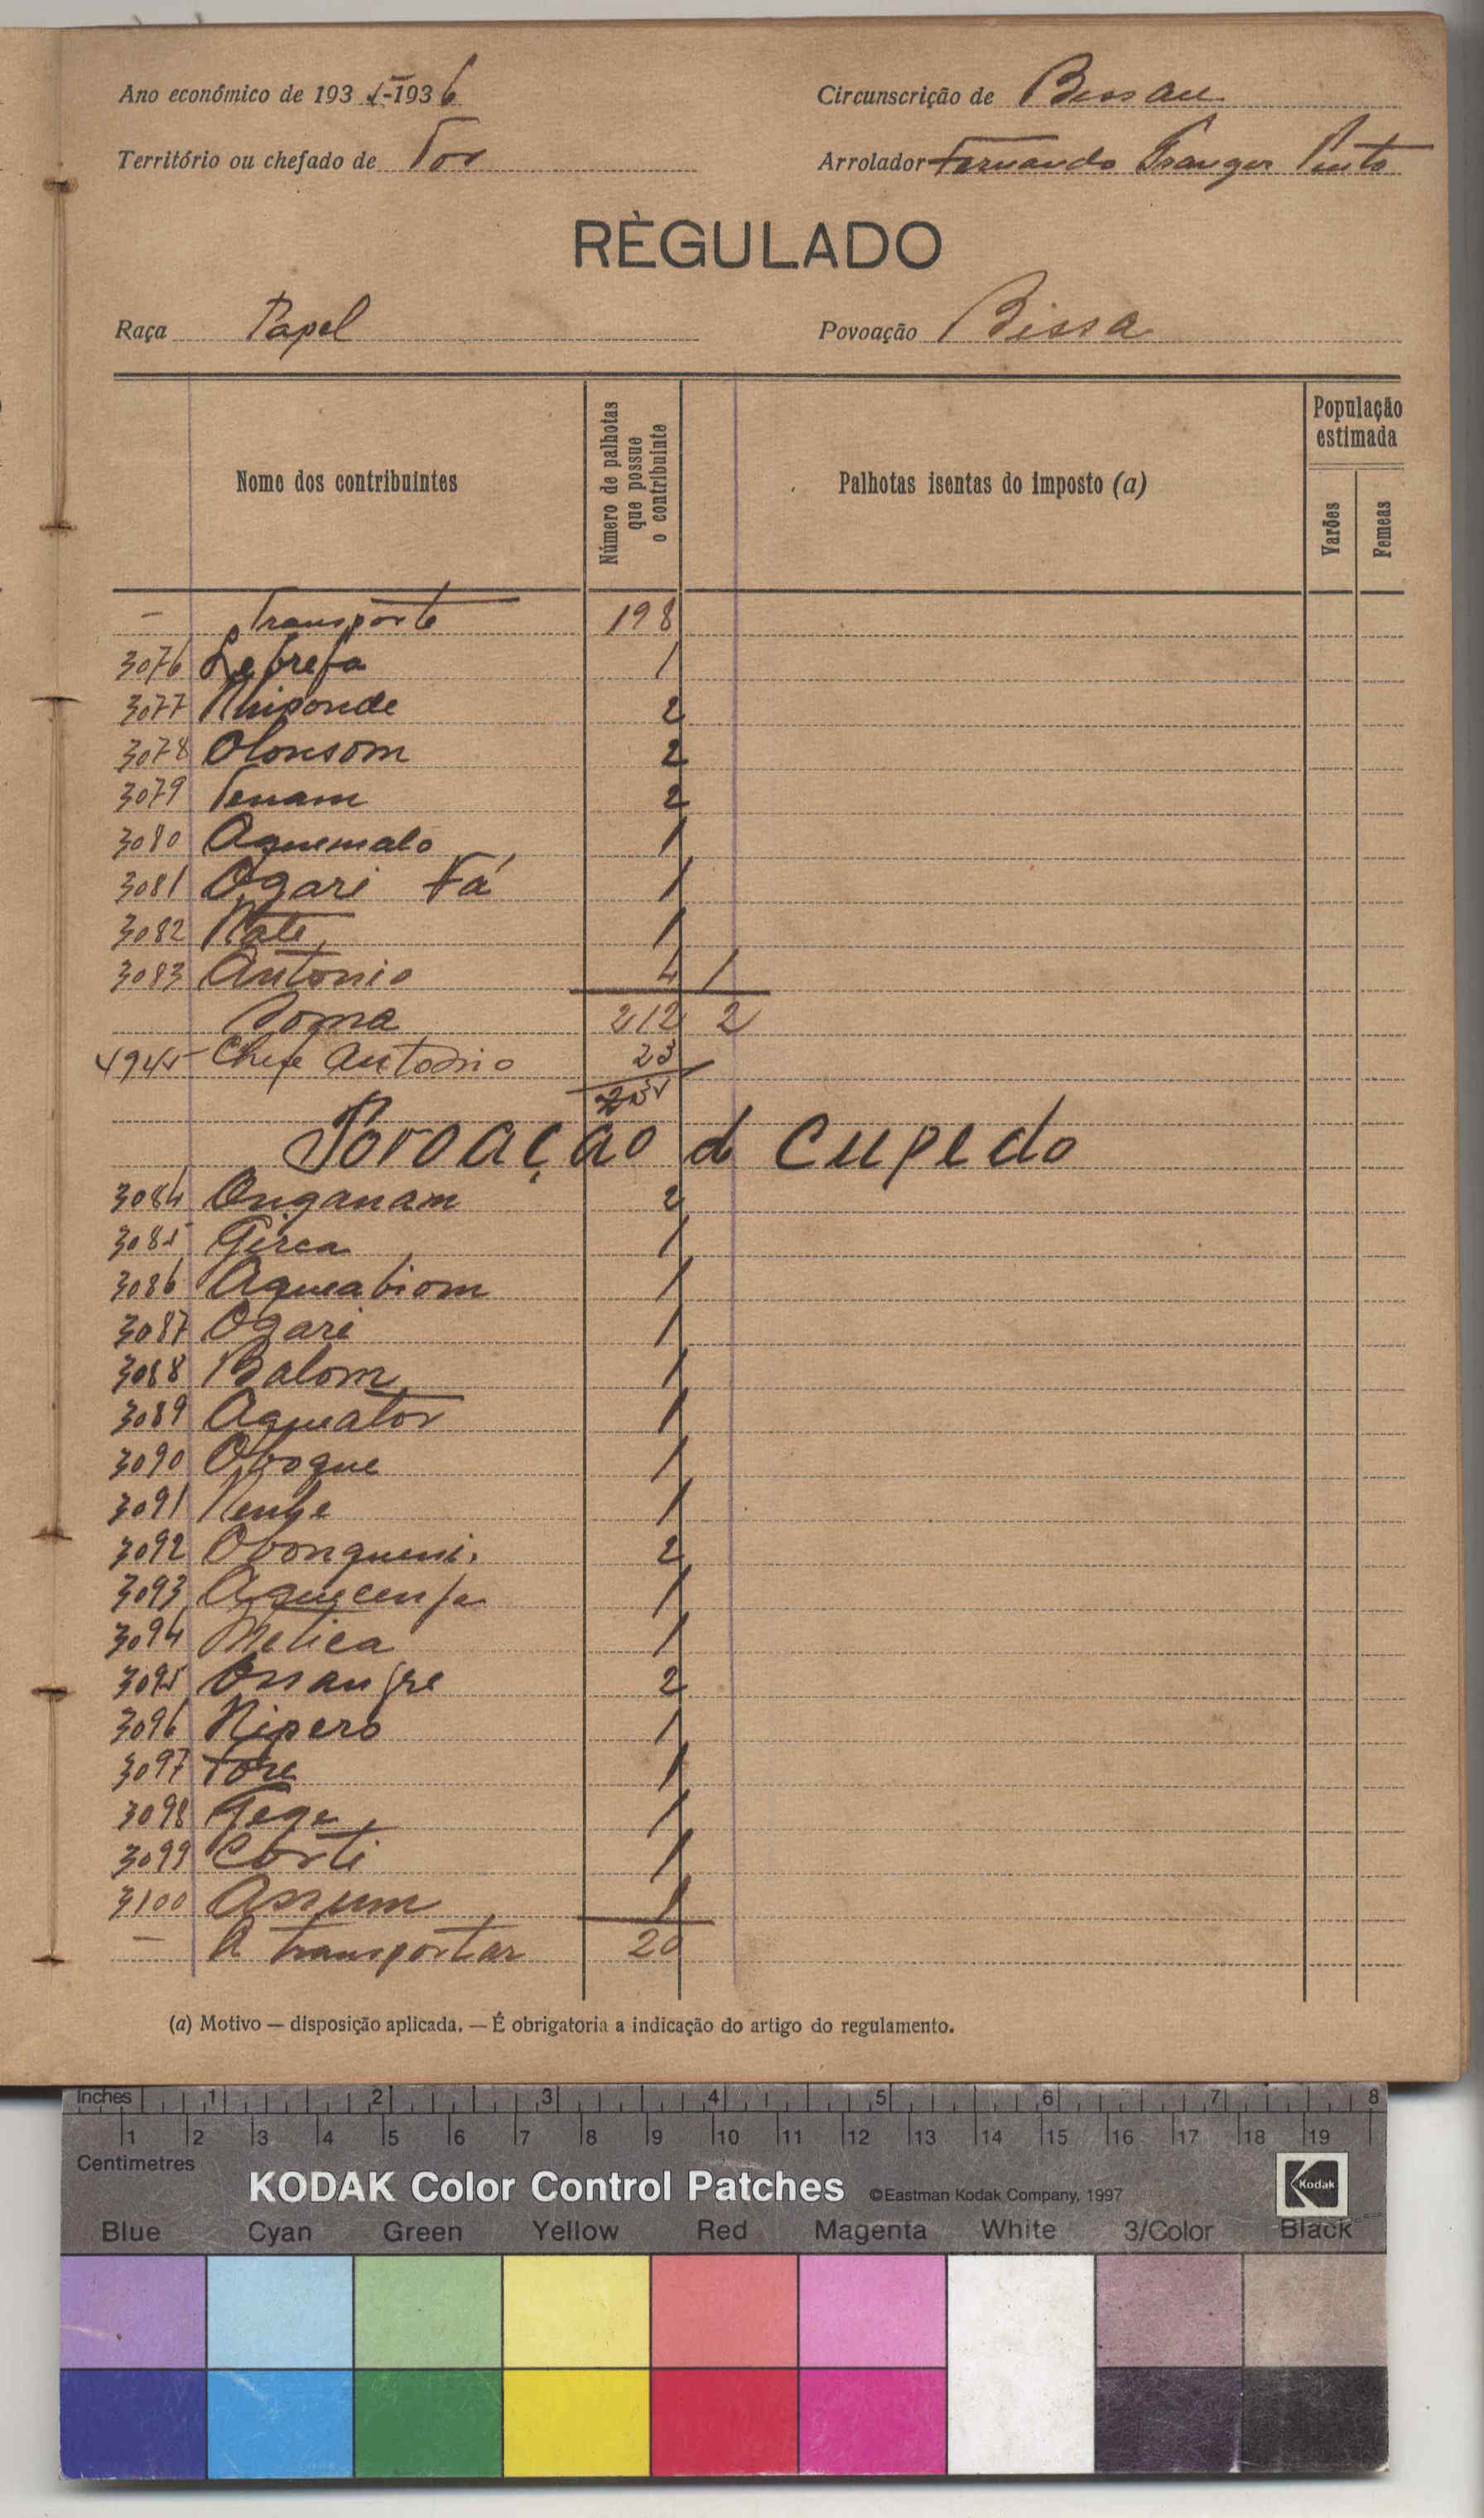 Ano económico de 1935-1936
Circunscrição de Bissau
Território ou chefado de Tor
Arrolador Fernando Pinto
RÈGULADO
Raça Papel
Povoação Bissa
Nome dos contribuintes
Número de palhotas que possue o contribuinte
Palhotas isentas do imposto (a)
População estimada
Varões
Femeas
- Transporte 198
3076 Lebrefa 1
3077 Nhiponde 2
3078 Olonsom 2
3079 Tenam 2
3080 Aquemalo 1
3081 Ogari Fá 1
3082 Nate 1
3083 Antonio 4 1
Soma 212 2
4945 Chefe Antonio 23
235
Povoação d Cupedo
3084 Onganam 2
3085 Girca 1
3086 Aqueabiom 1
3087 Ogari 1
3088 Balom 1
3089 Aqueator 1
3090 Oboque 1
3091 Nenhe 1
3092 Obongueni 2
3093 Aquecenfa 1
3094 Metica 1
3095 Ossangre 2
3096 Nipero 1
3097 Fore 1
3098 Gege 1
3099 Corti 1
3100 Assum 1
- A transportar 20
(a) Motivo — disposição aplicada. — É obrigatoria a indicação do artigo do regulamento.
Inches 1 2 3 4 5 6 7 8
1 2 3 4 5 6 7 8 9 10 11 12 13 14 15 16 17 18 19
Centimetres
KODAK Color Control Patches ©Eastman Kodak Company, 1997 Kodak
Blue Cyan Green Yellow Red Magenta White 3/Color Black